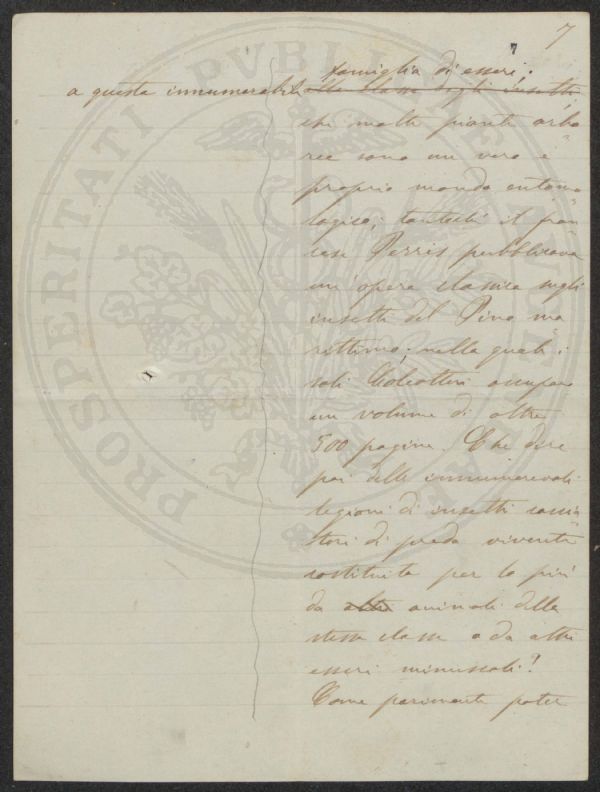 7
7
famiglia di esseri.
a questa innumerabile alla classe degli insetti
che molte piante arbo
ree sono un vero e
proprio mondo entomo
logico; tantochè il fran
cese Perris pubblicava
un'opera classica sugli
insetti del Pino ma
rittimo, nella quale i
soli Coleotteri occupano
un volume di oltre
500 pagine. Che dire
poi delle innumerevoli
legioni di insetti caccia
tori di preda vivente
costituita per lo più
da altri animali della
stessa classe o da altri
esseri minuscoli?
Come parimente poter
PROSPERITATI PVBLICAE